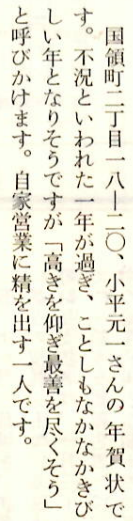 国領町二丁目一八―二〇、小平元一さんの年賀状で
す。不況といわれた一年が過ぎ、ことしもなかなかきび
しい年となりそうですが「高きを仰ぎ最善を尽くそう」
と呼びかけます。自家営業に精を出す一人です。